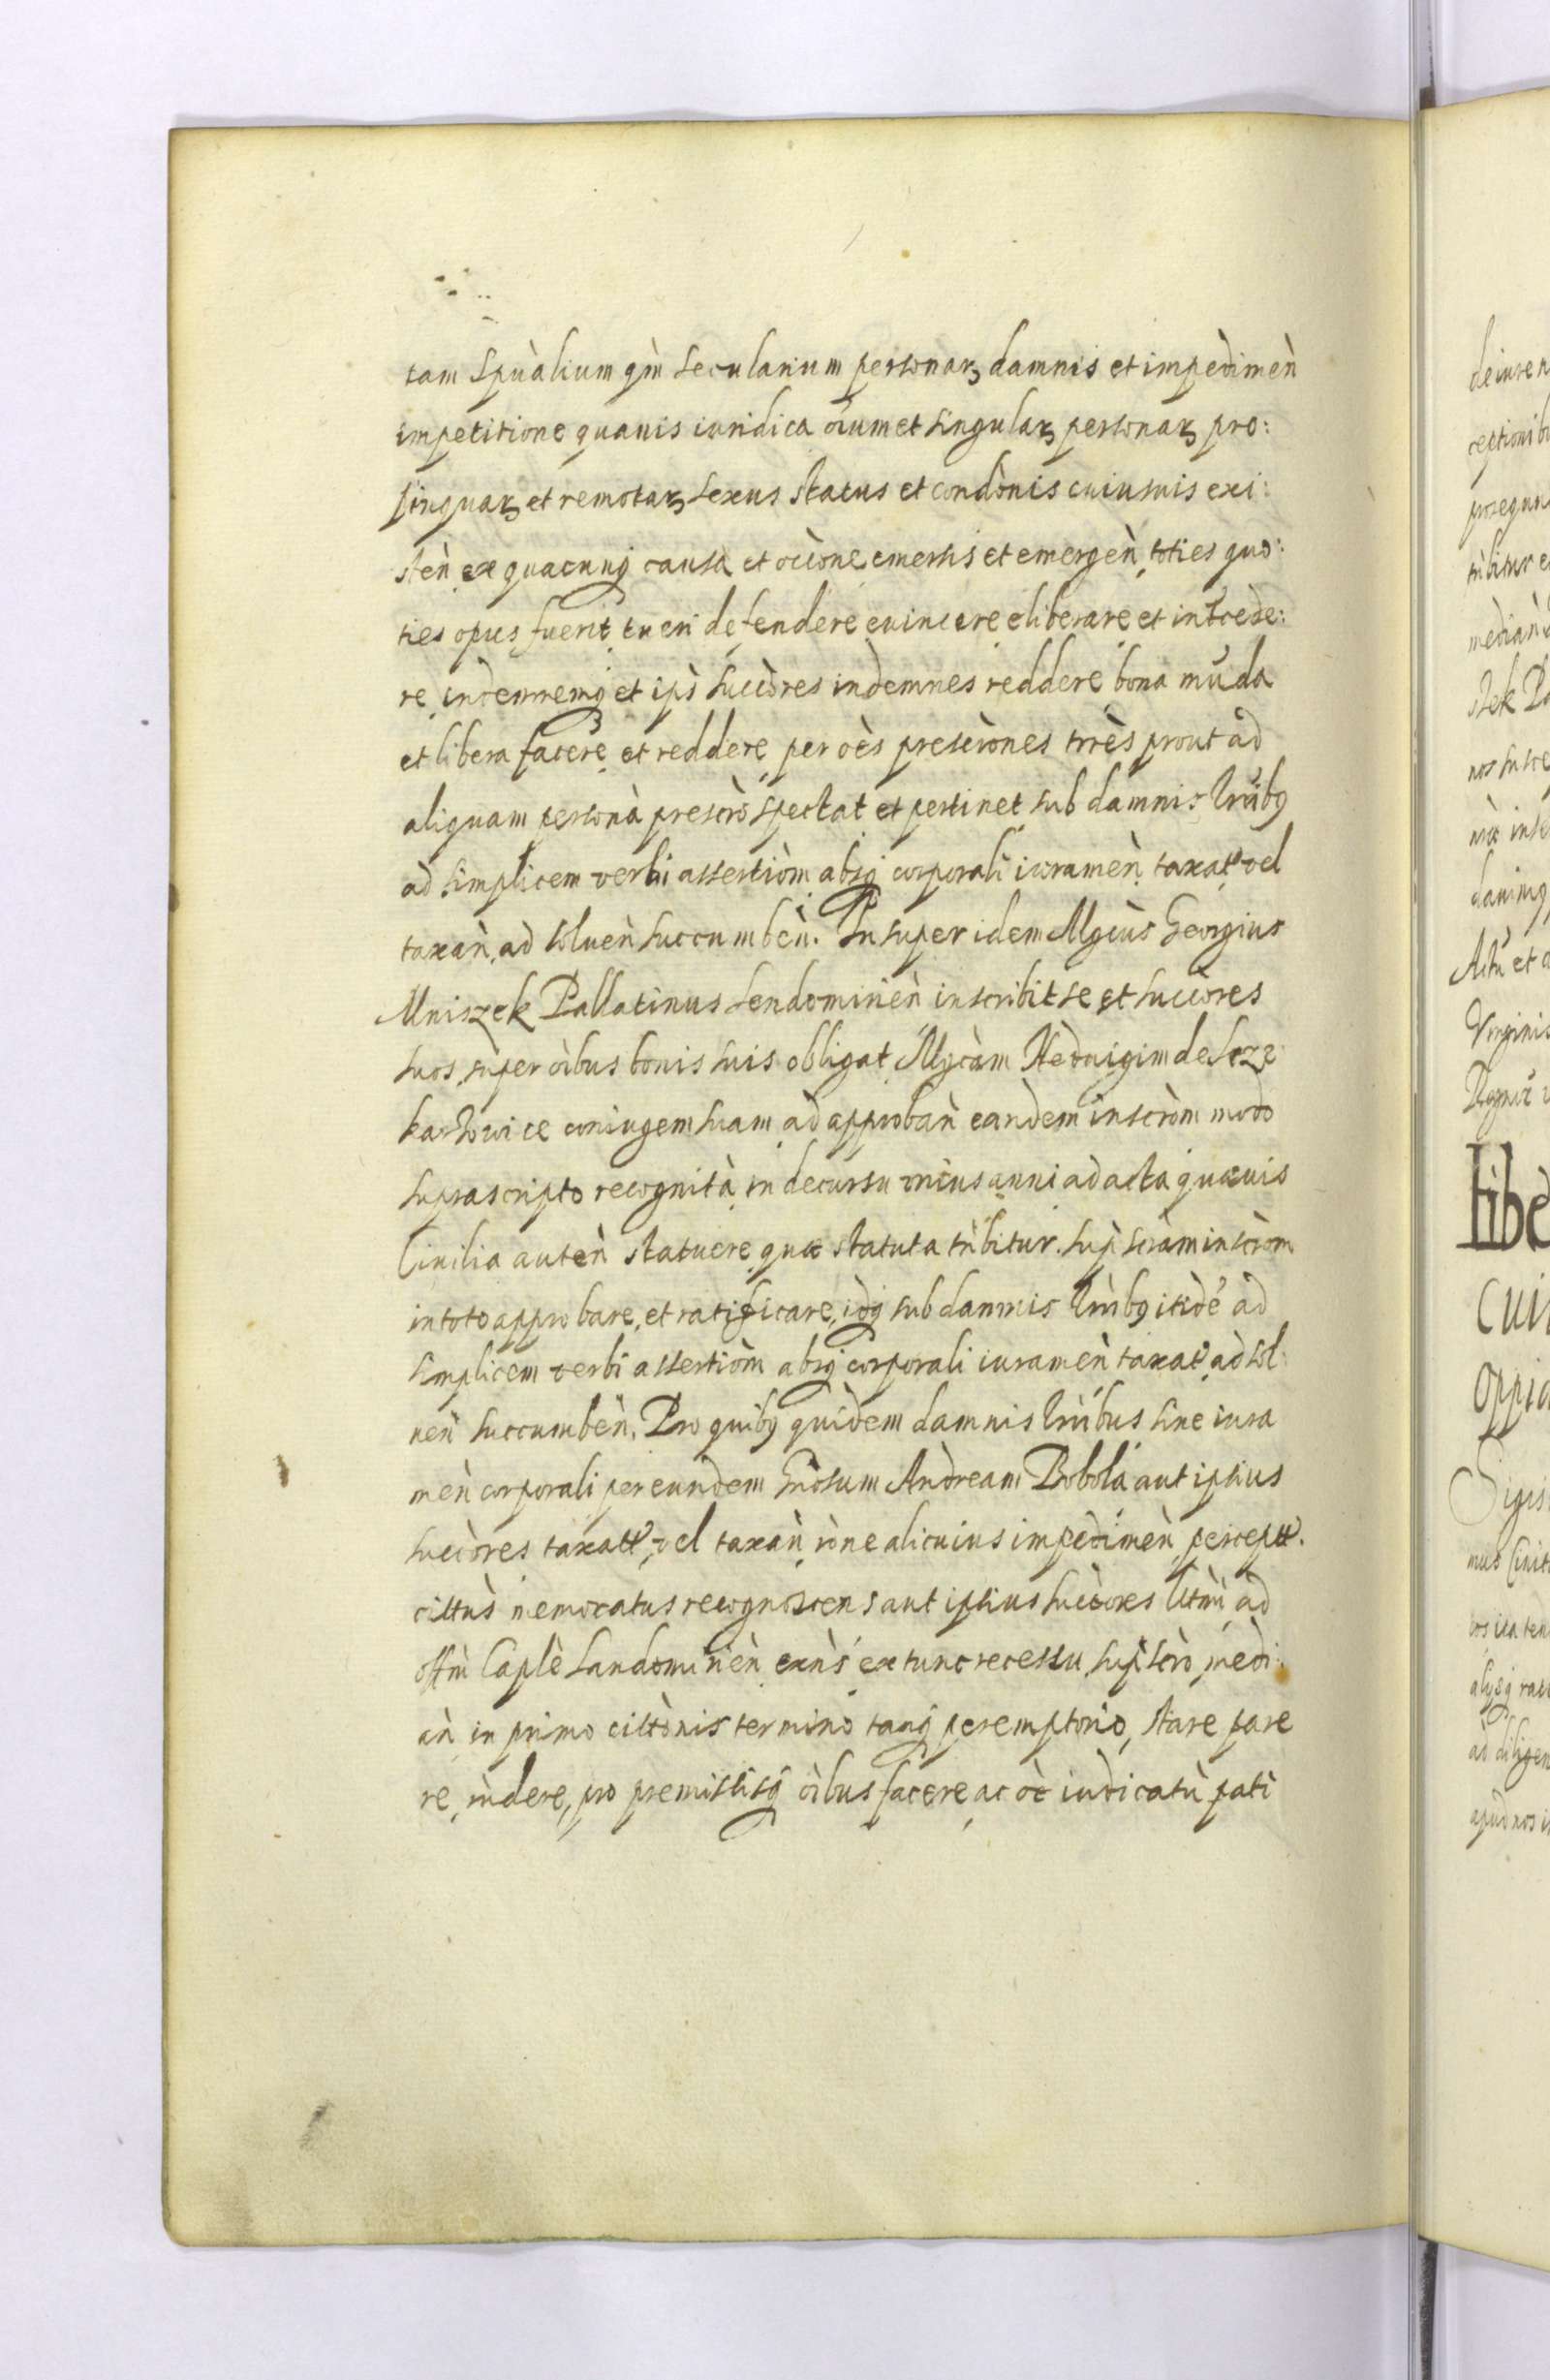 tam Spùalium qm̀ secularium personarꝫ damnis et impèdimèn
impetitione quauis iuridica oium et singularꝫ personarꝫ pro:
pinquarꝫ et remotarꝫ sexus status et condònis cuiusuis exi:
stèn ex quacunqꝫ causa et occòne emersis et emergèn, toties quo:
ties opus fuerit, tueri defendere euincere eliberare et intrcede:
re indemnemqꝫ et ips̀ succòres indemnes reddere, bona mūda
et libera facere et reddere per oès prescrònes trrès prout ad
aliquam personà prescrò spectat et pertinet sub damnis trrībꝰ
ad simplicem verbi assertiòm absqꝫ corporali iuramèn taxat̕ vel
taxàn, ad soluèn succumbèn. Insuper idem Mgcùs Georgius
Mniszek Pallatinus Sendomirièn inscribit se et succòres
suos, super òibus bonis suis obligat, Mgcàm Hedvigim de
coniugem suam ad approbàn eandem inscròm modo
suprascripto recognità, in decursu vnìus anni ad acta quæuis
Ciuilia autèn statuere, quæ statuta trìbitur. sup̀ scràm inscròm
in toto approbare, et ratificare, idqꝫ sub damnis trrìbꝰ itidē ad
simplicem verbi assertiòm absqꝫ corporali iuramèn taxat̕, ad sol:
uèn succumbèn. Pro quibꝰ quidem damnis trrìbus sine iura
mèn corporali per eundem Gnòsum Andream Bobola aut ipsius
succòres taxatt̕, vel taxàn ròne alicuius impedimèn, perceptt̕.
cittùs memoratus recognoscens aut ipsius succòres ltm̀i, ad
offm̀ Caplè Sandomirièn exǹs ex tunc recessu, sup̀scrò, medi:
àn in primo cittònis termino tanqꝫ peremptorio, stare pare
re, rǹdere, pro premissisqꝫ òibus facere, ac oè iudicatù pati
deiure n
mediàn
stek Pa
Actù et a
Virginis
Libe
Cui
Oppi
Sigis